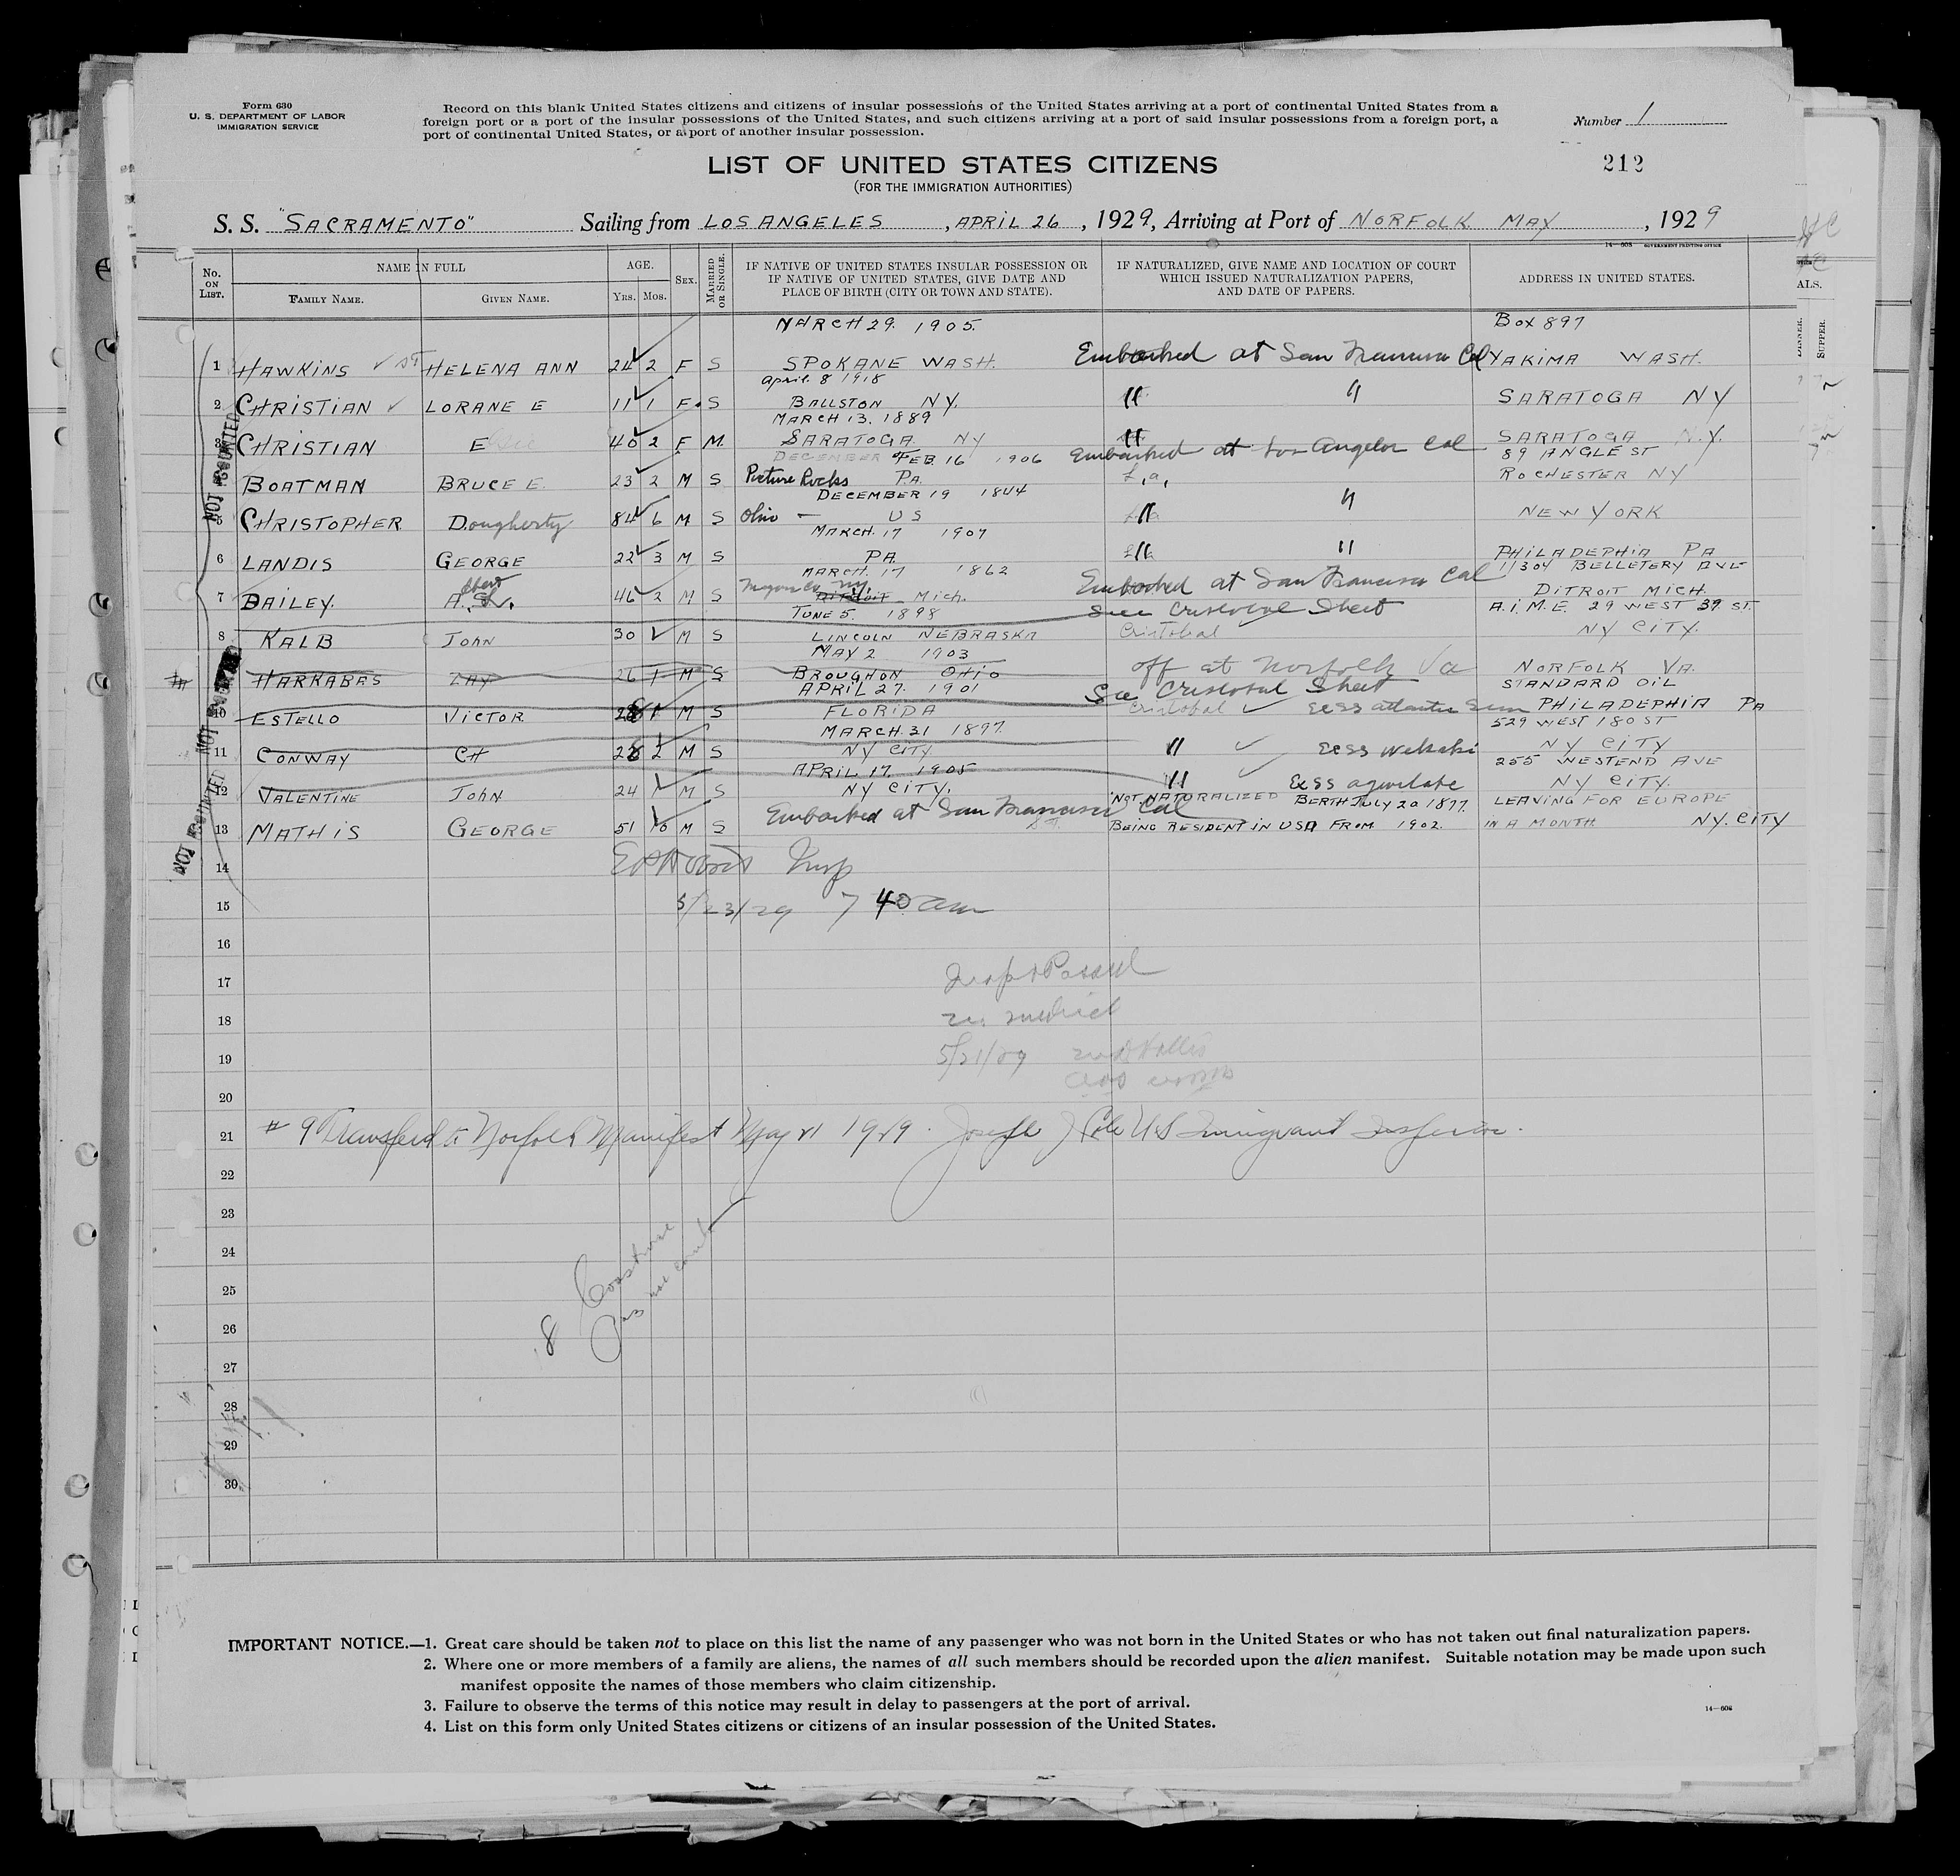 Form 630
U. S. DEPARTMENT OF LABOR
IMMIGRATION SERVICE
Record on this blank United States citizens and citizens of insular possessions of the United States arriving at a port of continental United States from a
foreign port or a port of the insular possessions of the United States, and such citizens arriving at a port of said insular possessions from a foreign port, a
port of continental United States, or a port of another insular possession.
Number 1
212
LIST OF UNITED STATES CITIZENS
(FOR THE IMMIGRATION AUTHORITIES)
S. S. "SACRAMENTO" Sailing from LOS ANGELES, APRIL 26, 1929, Arriving at Port of NORFOLK MAY, 1929
14—608 GOVERNMENT PRINTING OFFICE
No. ON LIST. NAME IN FULL FAMILY NAME. GIVEN NAME. AGE. YRS. MOS. SEX. MARRIED OR SINGLE. IF NATIVE OF UNITED STATES INSULAR POSSESSION OR IF NATIVE OF UNITED STATES, GIVE DATE AND PLACE OF BIRTH (CITY OR TOWN AND STATE). IF NATURALIZED, GIVE NAME AND LOCATION OF COURT WHICH ISSUED NATURALIZATION PAPERS, AND DATE OF PAPERS. ADDRESS IN UNITED STATES.
MARCH 29. 1905. BOX 897
1 HAWKINS HELENA ANN 24 2 F S SPOKANE WASH. Embarked at San Francisco Cal YAKIMA WASH.
April. 8 1918
2 CHRISTIAN LORANE E 11 1 F S BALLSTON NY. " " SARATOGA NY
MARCH 13. 1889
3 CHRISTIAN E 40 2 F M. SARATOGA NY " SARATOGA N.Y.
DECEMBER FEB. 16 1906 Embarked at Los Angeles Cal 89 ANGLE ST
BOATMAN BRUCE E. 23 2 M S Picture Rocks PA. L.A. ROCHESTER NY
DECEMBER 19 1844
5 CHRISTOPHER Dougherty 84 6 M S Ohio - US " " NEW YORK
MARCH. 17 1907
6 LANDIS GEORGE 22 3 M S PA. " " PHILADEPHIA PA
MARCH. 17 1862 11304 BELLETERY AVE
7 BAILEY. A. 46 2 M S DITROIT Mich. Embarked at San Francisco Cal DITROIT MICH.
JUNE 5. 1898 See Cristobal Sheet A.I.M.E. 29 WEST 39 ST.
8 KALB John 30 M S LINCOLN NEBRASKA Cristobal NY CITY.
MAY 2 1903
HARKABES ZAY 26 1 M S BROUGHON OHIO off at Norfolk Va NORFOLK VA.
APRIL 27. 1901 See Cristobal Sheet STANDARD OIL
10 ESTELLO VICTOR 28 1 M S FLORIDA Cristobal PHILADEPHIA PA
MARCH. 31 1897. 529 WEST 180 ST
11 CONWAY CH 2 M S NY CITY " NY CITY
APRIL 17. 1905 255 WESTEND AVE
12 VALENTINE John 24 M S NY CITY. " NY CITY.
NOT NATURALIZED BERTH JULY 20 1877. LEAVING FOR EUROPE
13 MATHIS GEORGE 51 10 M S Embarked at San Francisco Cal BEING RESIDENT IN USA FROM 1902. IN A MONTH NY. CITY
NOT COUNTED
14
15 5/23/29 7 40 am
16
17 Insp & Passed
18
19 5/21/29
20
21 # 9 Transferd to Norfolk Manifest May 21 1929. Joseph J Cole US Immigrant Inspector.
22
23
24 Coastwise
25
26 8
27
28
29
30
IMPORTANT NOTICE.—1. Great care should be taken not to place on this list the name of any passenger who was not born in the United States or who has not taken out final naturalization papers.
2. Where one or more members of a family are aliens, the names of all such members should be recorded upon the alien manifest. Suitable notation may be made upon such
manifest opposite the names of those members who claim citizenship.
3. Failure to observe the terms of this notice may result in delay to passengers at the port of arrival.
4. List on this form only United States citizens or citizens of an insular possession of the United States.
14—608